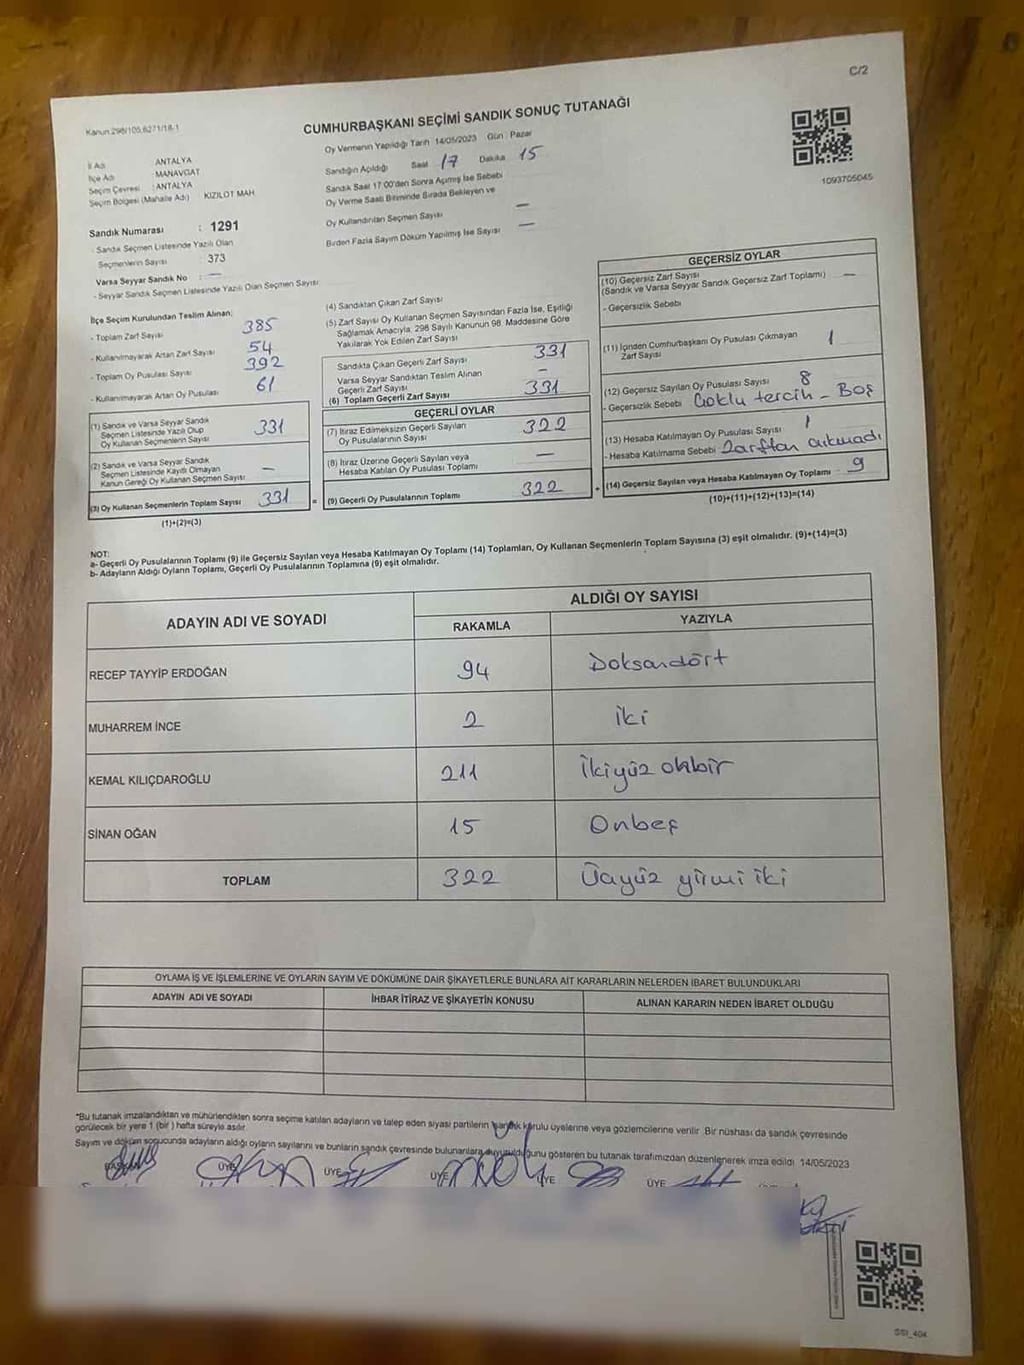 C/2
Kanun 298/105,6271/18-1
CUMHURBAŞKANI SEÇİMİ SANDIK SONUÇ TUTANAĞI
Oy Vermenin Yapıldığı Tarih 14/05/2023 Gün: Pazar
1093705045
İl Adı : ANTALYA
İlçe Adı : MANAVGAT
Seçim Çevresi : ANTALYA
Seçim Bölgesi (Mahalle Adı) KIZILOT MAH
Sandığın Açıldığı Saat 17 Dakika 15
Sandık Saat 17:00'den Sonra Açılmış İse Sebebi
Oy Verme Saati Bitiminde Sırada Bekleyen ve
Oy Kullandırılan Seçmen Sayısı —
Birden Fazla Sayım Döküm Yapılmış İse Sayısı —
Sandık Numarası : 1291
- Sandık Seçmen Listesinde Yazılı Olan
Seçmenlerin Sayısı : 373
Varsa Seyyar Sandık No : —
- Seyyar Sandık Seçmen Listesinde Yazılı Olan Seçmen Sayısı
İlçe Seçim Kurulundan Teslim Alınan:
- Toplam Zarf Sayısı 385
- Kullanılmayarak Artan Zarf Sayısı 54
- Toplam Oy Pusulası Sayısı 392
- Kullanılmayarak Artan Oy Pusulası 61
(1) Sandık ve Varsa Seyyar Sandık
Seçmen Listesinde Yazılı Olup
Oy Kullanan Seçmenlerin Sayısı 331
(2) Sandık ve Varsa Seyyar Sandık
Seçmen Listesinde Kayıtlı Olmayan
Kanun Gereği Oy Kullanan Seçmen Sayısı —
(3) Oy Kullanan Seçmenlerin Toplam Sayısı 331
(1)+(2)=(3)
(4) Sandıktan Çıkan Zarf Sayısı
(5) Zarf Sayısı Oy Kullanan Seçmen Sayısından Fazla İse, Eşitliği
Sağlamak Amacıyla, 298 Sayılı Kanunun 98. Maddesine Göre
Yakılarak Yok Edilen Zarf Sayısı
Sandıkta Çıkan Geçerli Zarf Sayısı 331
Varsa Seyyar Sandıktan Teslim Alınan
Geçerli Zarf Sayısı –
(6) Toplam Geçerli Zarf Sayısı 331
GEÇERLİ OYLAR
(7) İtiraz Edilmeksizin Geçerli Sayılan
Oy Pusulalarının Sayısı 322
(8) İtiraz Üzerine Geçerli Sayılan veya
Hesaba Katılan Oy Pusulası Toplamı —
= (9) Geçerli Oy Pusulalarının Toplamı 322
GEÇERSİZ OYLAR
(10) Geçersiz Zarf Sayısı
(Sandık ve Varsa Seyyar Sandık Geçersiz Zarf Toplamı) —
- Geçersizlik Sebebi
(11) İçinden Cumhurbaşkanı Oy Pusulası Çıkmayan
Zarf Sayısı 1
(12) Geçersiz Sayılan Oy Pusulası Sayısı 8
- Geçersizlik Sebebi Çoklu tercih - Boş
(13) Hesaba Katılmayan Oy Pusulası Sayısı 1
- Hesaba Katılmama Sebebi Zarftan çıkmadı
+ (14) Geçersiz Sayılan veya Hesaba Katılmayan Oy Toplamı 9
(10)+(11)+(12)+(13)=(14)
NOT:
a- Geçerli Oy Pusulalarının Toplamı (9) ile Geçersiz Sayılan veya Hesaba Katılmayan Oy Toplamı (14) Toplamları, Oy Kullanan Seçmenlerin Toplam Sayısına (3) eşit olmalıdır. (9)+(14)=(3)
b- Adayların Aldığı Oyların Toplamı, Geçerli Oy Pusulalarının Toplamına (9) eşit olmalıdır.
ADAYIN ADI VE SOYADI
ALDIĞI OY SAYISI
RAKAMLA YAZIYLA
RECEP TAYYİP ERDOĞAN 94 Doksandört
MUHARREM İNCE 2 İki
KEMAL KILIÇDAROĞLU 211 İkiyüz onbir
SİNAN OĞAN 15 Onbeş
TOPLAM 322 Üçyüz yirmi iki
OYLAMA İŞ VE İŞLEMLERİNE VE OYLARIN SAYIM VE DÖKÜMÜNE DAİR ŞİKAYETLERLE BUNLARA AİT KARARLARIN NELERDEN İBARET BULUNDUKLARI
ADAYIN ADI VE SOYADI İHBAR İTİRAZ VE ŞİKAYETİN KONUSU ALINAN KARARIN NEDEN İBARET OLDUĞU
*Bu tutanak imzalandıktan ve mühürlendikten sonra seçime katılan adayların ve talep eden siyasi partilerin sandık kurulu üyelerine veya gözlemcilerine verilir. Bir nüshası da sandık çevresinde
görülecek bir yere 1 (bir) hafta süreyle asılır.
Sayım ve döküm sonucunda adayların aldığı oyların sayılarını ve bunların sandık çevresinde bulunanlara duyurulduğunu gösteren bu tutanak tarafımızdan düzenlenerek imza edildi. 14/05/2023
BAŞKAN ÜYE ÜYE ÜYE ÜYE ÜYE
SSI_404